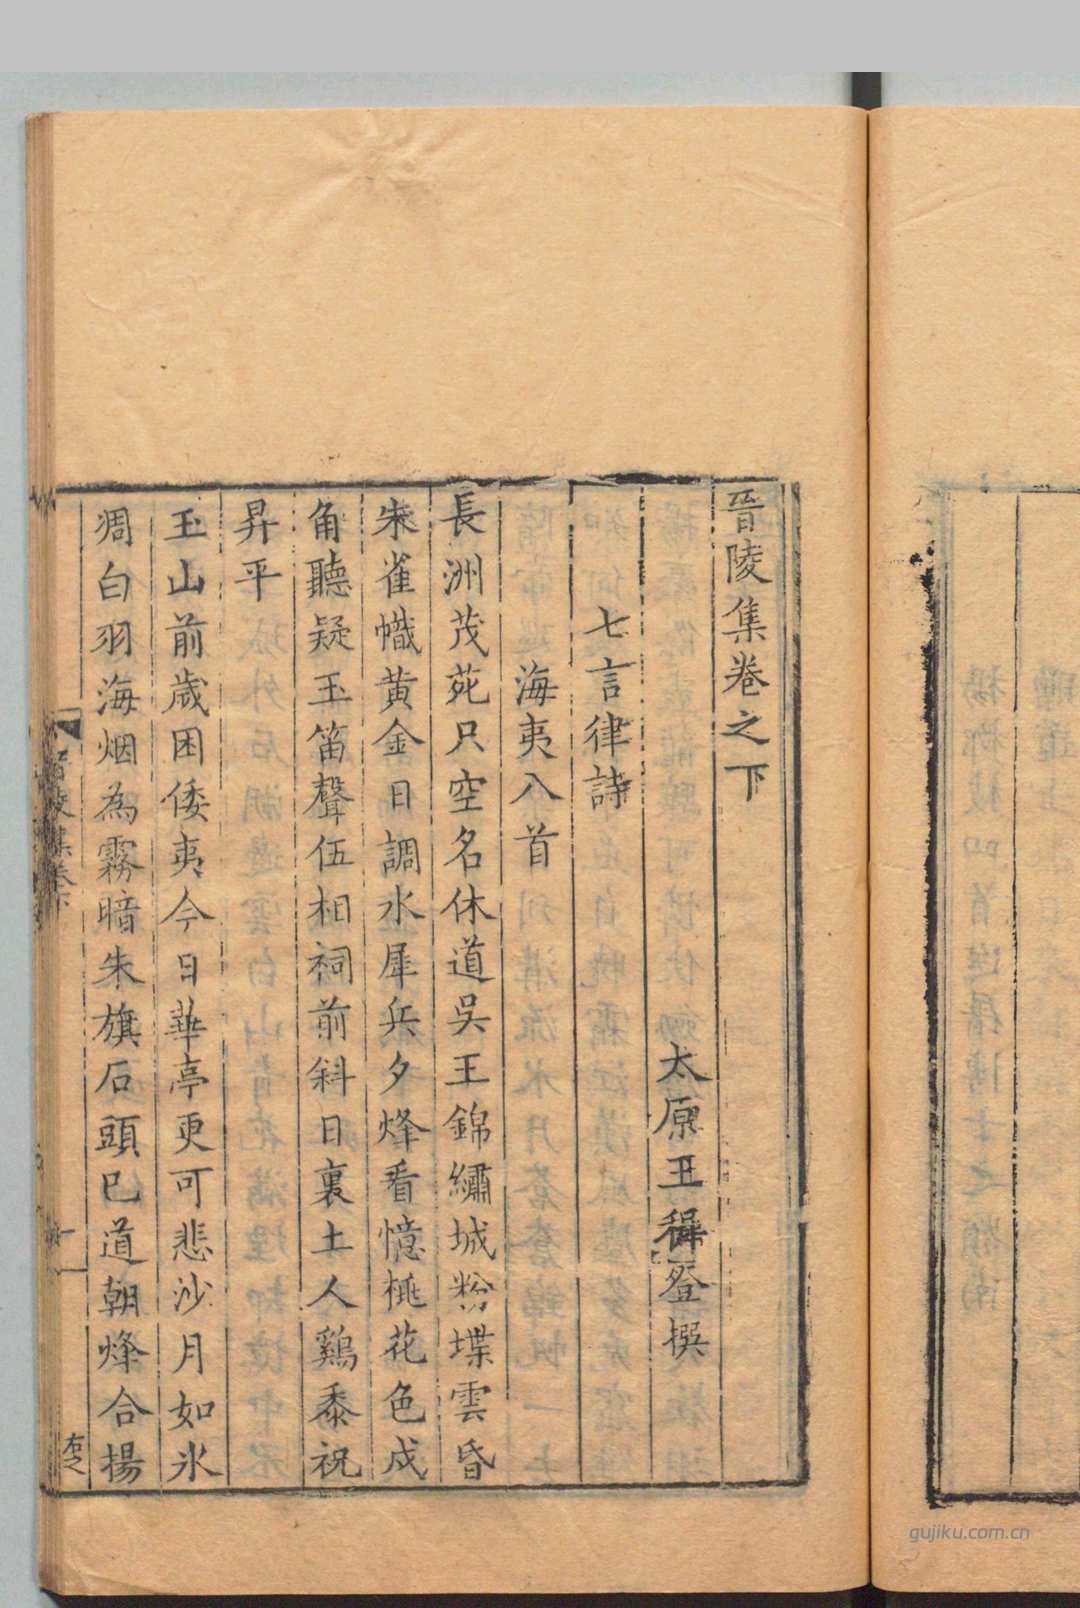 晉陵集卷之下
太原王穉登撰
七言律詩
海夷八首
長洲茂苑只空名休道吳王錦繡城粉堞雲昏
朱雀幟黄金日調水犀兵夕烽看憶桃花色戍
角聽疑玉笛聲伍相祠前斜日裏土人鷄黍祝
昇平
玉山前歲困倭夷今日華亭更可悲沙月如氷
凋白羽海烟為霧暗朱旗石頭已道朝烽合揚
晉陵集卷下
一
gujiku.com.cn